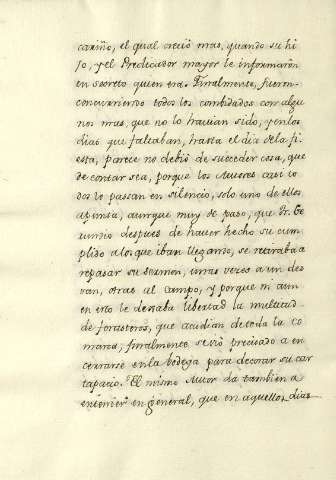 cariño, el qual creció mas, quando su hi
jo, y el Predicador mayor le informaron
en secreto quien era. Finalmente, fueron
concurriendo todos los combidados con algu
nos mas, que no lo havian sido, y en los
dias que faltaban, hasta el dia de la fi
esta, parece no debió de succeder cosa, que
de contar sea, porque los Autores casi to
dos lo passan en silencio, solo uno de ellos
apunta, aunque muy de paso, que Fr. Ge
rundio despues de haver hecho su cum
plido a los que iban llegando, se retiraba a
repasar su sermon, unas veces a un des
van, otras al campo, y porque ni aun
en esto le dexaba libertad la multitud
de forasteros, que acudian de toda la co
marca, finalmente se vió precisado a en
cerrarse en la bodega para decorar su car
tapacio. El mismo Autor dá tambien a
entender en general, que en aquellos dias